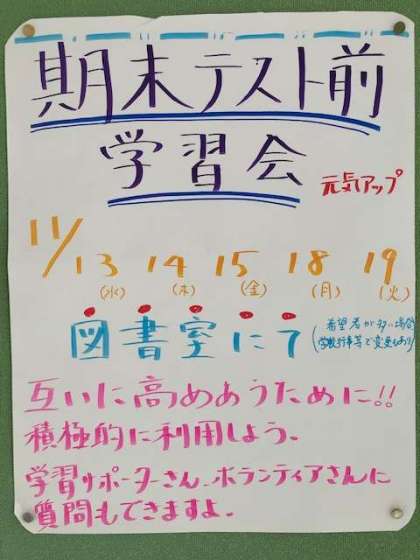 期末テスト前
学習会
元気アップ
11/13 14 15 18 19
(水) (木) (金) (月) (火)
図書室にて
(希望者が多い場合
学校行事等で変更もあり)
互いに高めあうために!!
積極的に利用しよう。
学習サポーターさん、ボランティアさんに
質問もできますよ。